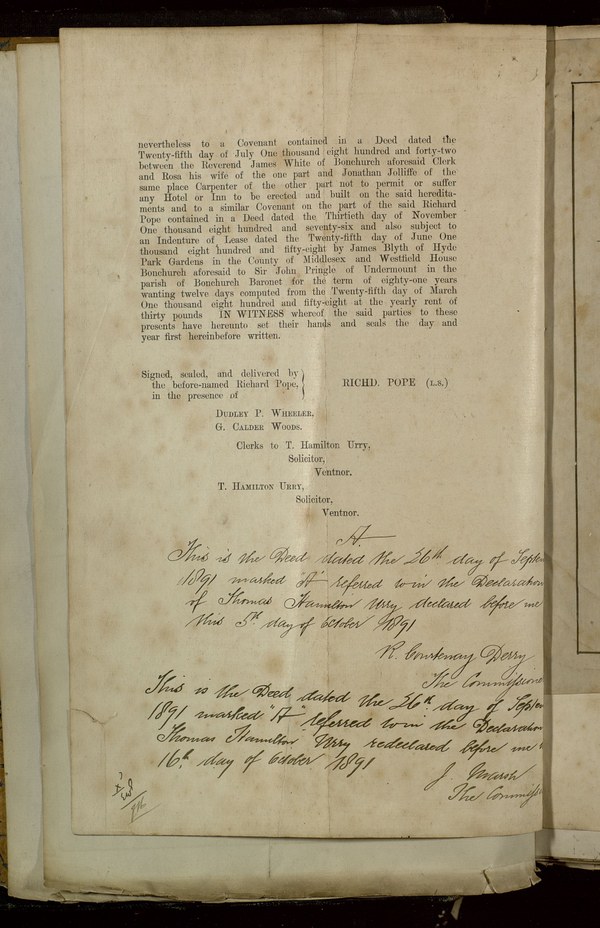 nevertheless to a Covenant contained in a Deed dated the
Twenty-fifth day of July One thousand eight hundred and forty-two
between the Reverend James White of Bonchurch aforesaid Clerk
and Rosa his wife of the one part and Jonathan Jolliffe of the
same place Carpenter of the other part not to permit or suffer
any Hotel or Inn to be erected and built on the said heredita-
ments and to a similar Covenant on the part of the said Richard
Pope contained in a Deed dated the Thirtieth day of November
One thousand eight hundred and seventy-six and also subject to
an Indenture of Lease dated the Twenty-fifth day of June One
thousand eight hundred and fifty-eight by James Blyth of Hyde
Park Gardens in the County of Middlesex and Westfield House
Bonchurch aforesaid to Sir John Pringle of Undermount in the
parish of Bonchurch Baronet for the term of eighty-one years
wanting twelve days computed from the Twenty-fifth day of March
One thousand eight hundred and fifty-eight at the yearly rent of
thirty pounds IN WITNESS whereof the said parties to these
presents have hereunto set their hands and seals the day and
year first hereinbefore written.
Signed, sealed, and delivered by
the before-named Richard Pope,
in the presence of
RICHD. POPE (L.S.)
DUDLEY P. WHEELER,
G. CALDER WOODS.
Clerks to T. Hamilton Urry,
Solicitor,
Ventnor.
T. HAMILTON URRY,
Solicitor,
Ventnor.
A.
This is the Deed dated the 26th day of Septem
1891 marked "A" referred to in the Declaration
of Thomas Hamilton Urry declared before me
this 5th day of October 1891
R. Courtenay Derry
The Commissione
This is the Deed dated the 26th day of Septem
1891 marked "A" referred to in the Declaration
Thomas Hamilton Urry redeclared before me
16th day of October 1891
J. Marsh
The Commiss